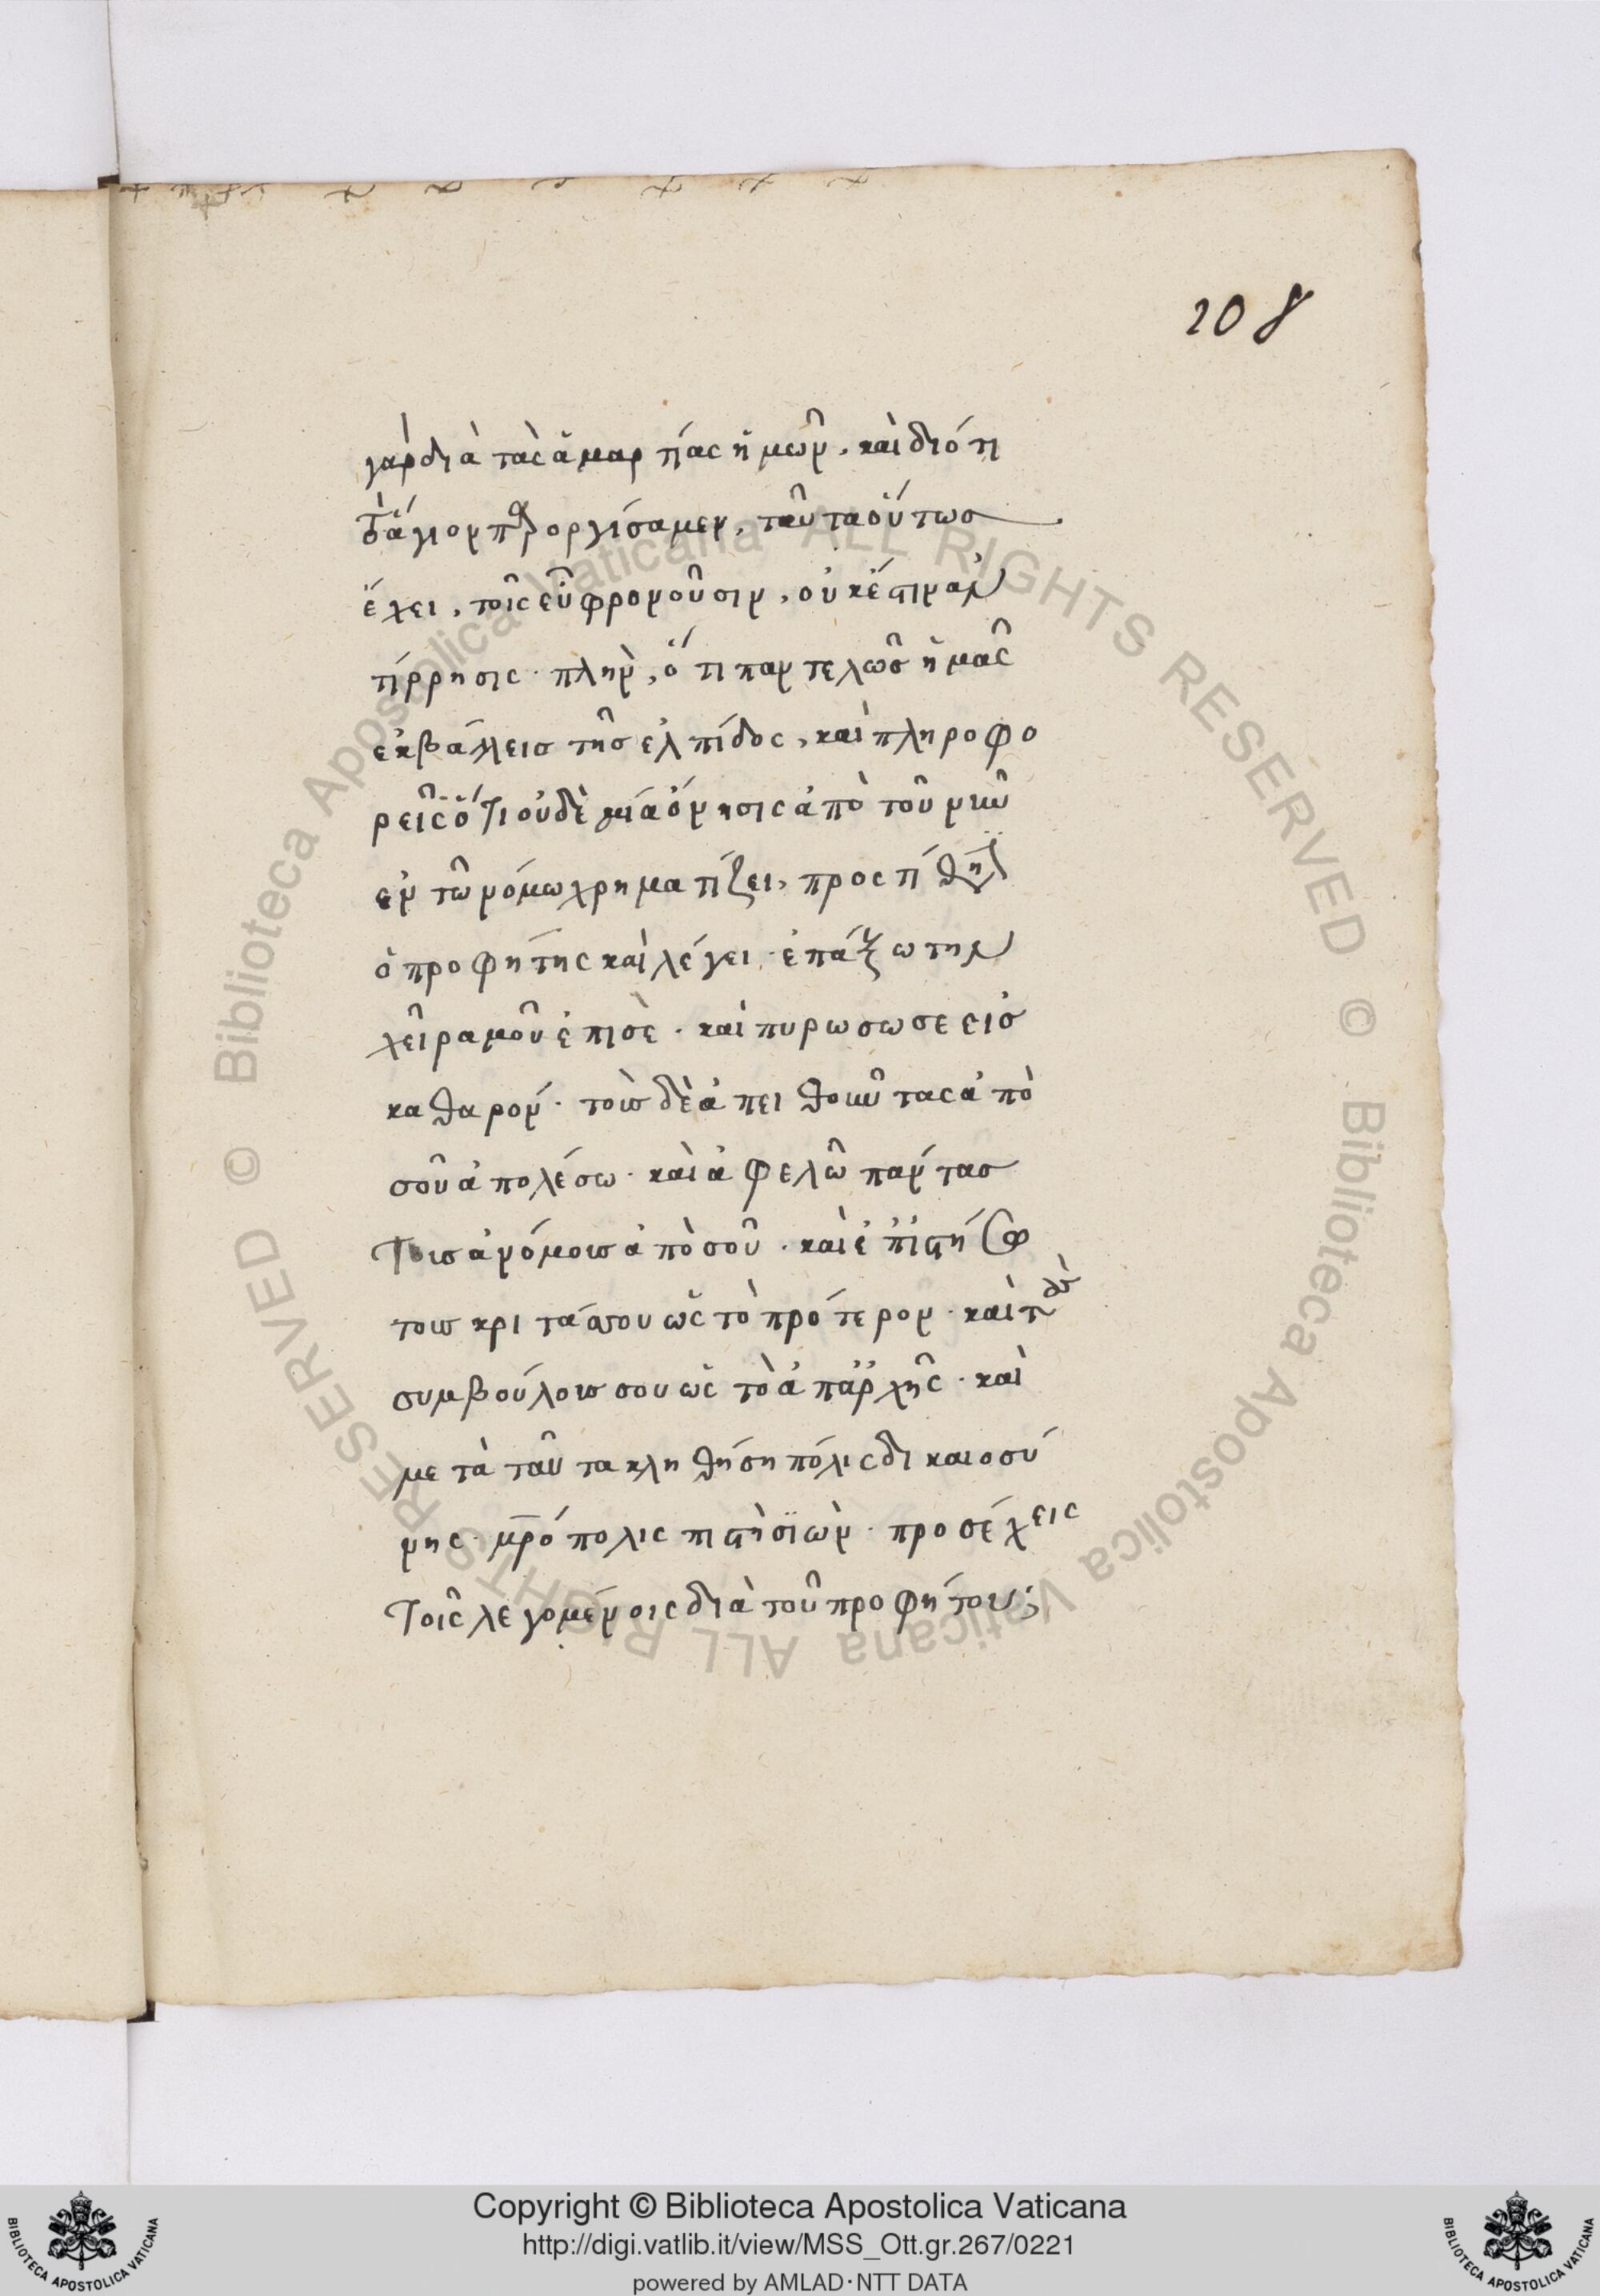 208
γὰρ διὰ τὰς ἁμαρτίας ἡμῶν, καὶ διότι
τὸ ἅγιον π̅ν̅α̅ ὀργίσαμεν, ταῦτα οὕτως
ἔχει, τοῖς εὖ φρονοῦσιν, οὐκ ἔστιν ἀν
τίρρησις· πλὴν, ὅτι παντελῶς ἡμᾶς
ἐκβάλλεις τῆς ἐλπίδος, καὶ πληροφο
ρεῖς ὅτι οὐδὲ μία ὄνησις ἀπὸ τοῦ νῦν
ἐν τῶ νόμω χρηματίζει, προστίθησι
ὁ προφήτης καὶ λέγει· ἐπάξω την
χεῖρα μοῦ ἐπὶ σὲ· καὶ πυρωσω σε εἰς
καθαρόν· τοὺς δὲ ἀπειθοῦντας ἀπὸ
σοῦ ἀπολέσω· καὶ ἀφελῶ πάντας
τους ἀνόμους ἀπὸ σοῦ· καὶ ἐπιστήσω
τους κριτάς σου ὡς τὸ πρότερον· καὶ τοὺς
συμβούλους σου ὡς τὸ ἀπ' ἀρχῆς· καὶ
μετὰ ταῦτα κληθήση πόλις δικαιοσύ
νης· μ̅ρ̅όπολις πιστὴ σϊών· προσέχεις
τοῖς λεγομένοις διὰ τοῦ προφήτου;
© Biblioteca Apostolica Vaticana ALL RIGHTS RESERVED © Biblioteca Apostolica Vaticana ALL RIGHTS RESERVED
Copyright © Biblioteca Apostolica Vaticana
http://digi.vatlib.it/view/MSS_Ott.gr.267/0221
powered by AMLAD·NTT DATA
BIBLIOTECA APOSTOLICA VATICANA
BIBLIOTECA APOSTOLICA VATICANA